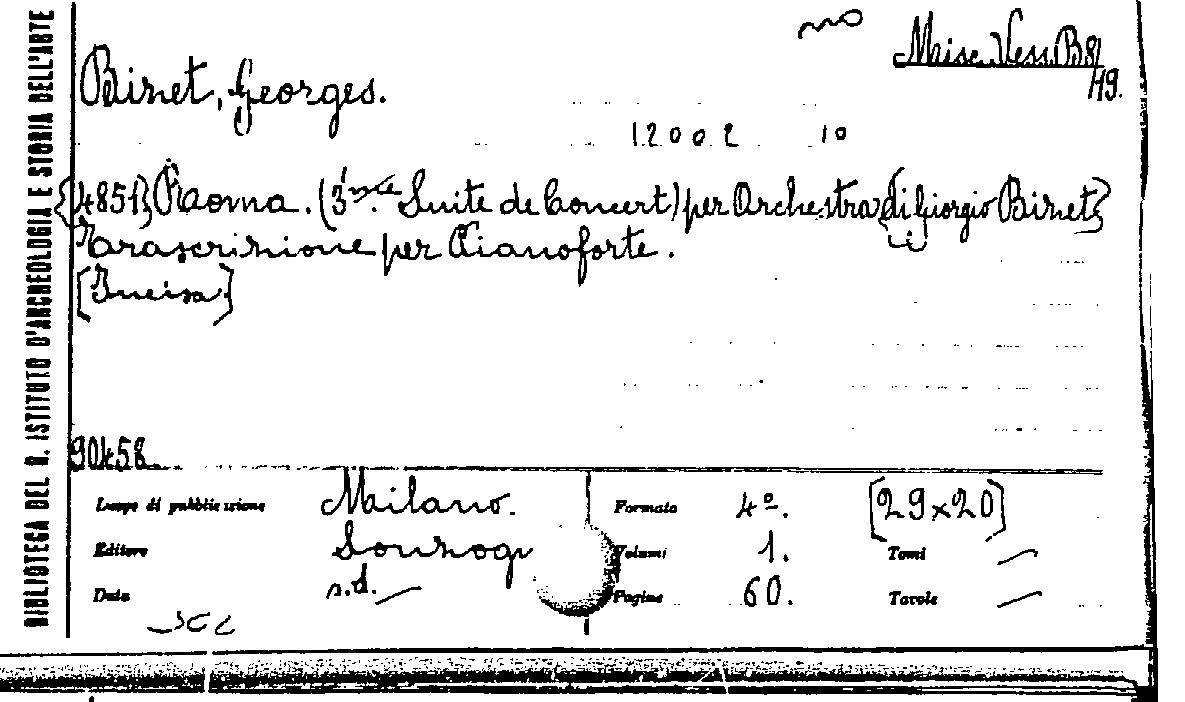 Misc. Vess. B8/
119.
Bizet, Georges.
12002 10
{4851} Roma. (3ème Suite de Concert) per Orchestra di Giorgio Bizet}
Trascrizione per Pianoforte.
[Incisa]
90458
Luogo di pubblicazione Milano. Formato 4º. [29x20]
Editore Sonzog Volumi 1. Tomi —
Data s.d. — Pagine 60. Tavole —
BIBLIOTECA DEL R. ISTITUTO D'ARCHEOLOGIA E STORIA DELL'ARTE